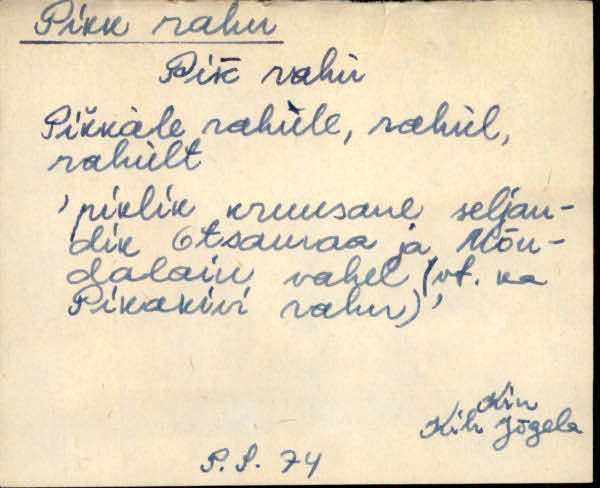 Pikk rahu
Pik̄ rahù
Pikkàle rahùle, rahùl,
rahùlt
'piklik kruusane seljan-
dik Otsamaa ja Mõn-
dalaiu vahel (vt. ka
Pikakivi rahu)'
Kin
Kih Jõgela
P. P. 74